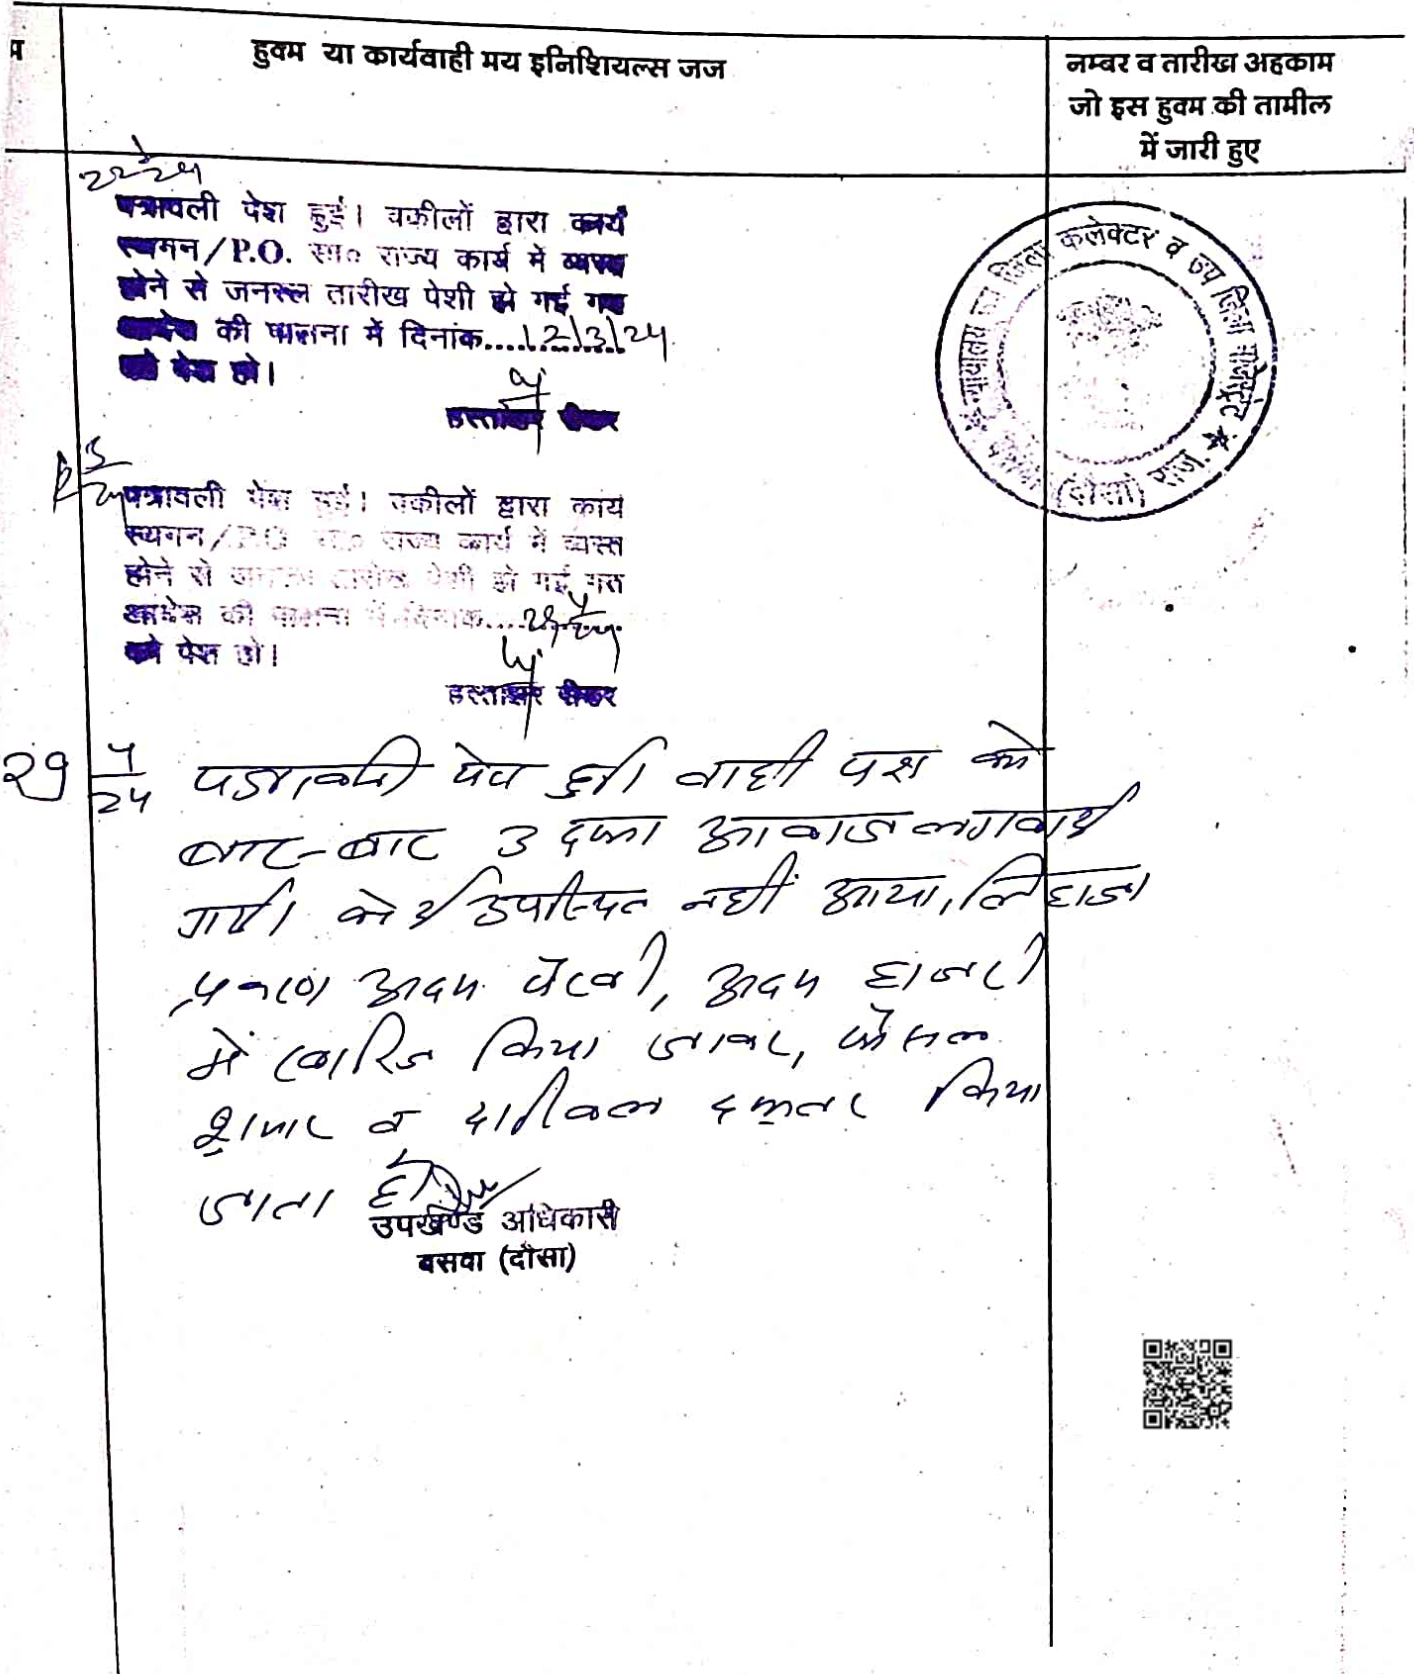 हुक्म या कार्यवाही मय इनिशियल्स जज
नम्बर व तारीख अहकाम
जो इस हुक्म की तामील
में जारी हुए
पत्रावली पेश हुई। वकीलों द्वारा कार्य
स्थगन/P.O. सा० राज्य कार्य में व्यस्त
होने से जनरल तारीख पेशी हो गई गत
आदेश की पालना में दिनांक.....12/3/24
को पेश हो।
हस्ताक्षर रीडर
न्यायालय उप जिला कलेक्टर व उप जिला मजिस्ट्रेट
बसवा (दौसा) राज.
पत्रावली पेश हुई। वकीलों द्वारा कार्य
स्थगन/P.O. सा० राज्य कार्य में व्यस्त
होने से जनरल तारीख पेशी हो गई गत
आदेश की पालना में दिनांक.....
को पेश हो।
हस्ताक्षर रीडर
29/4/24 पत्रावली पेश हुई। वादी पक्ष को
बार-बार 3 दफा आवाज लगवाई
गई। कोई उपस्थित नहीं आया, लिहाजा
प्रकरण अदम पैरवी, अदम हाजरी
में खारिज किया जाकर, फैसल
शुमार व दाखिल दफ्तर किया
जाता है।
उपखण्ड अधिकारी
बसवा (दौसा)